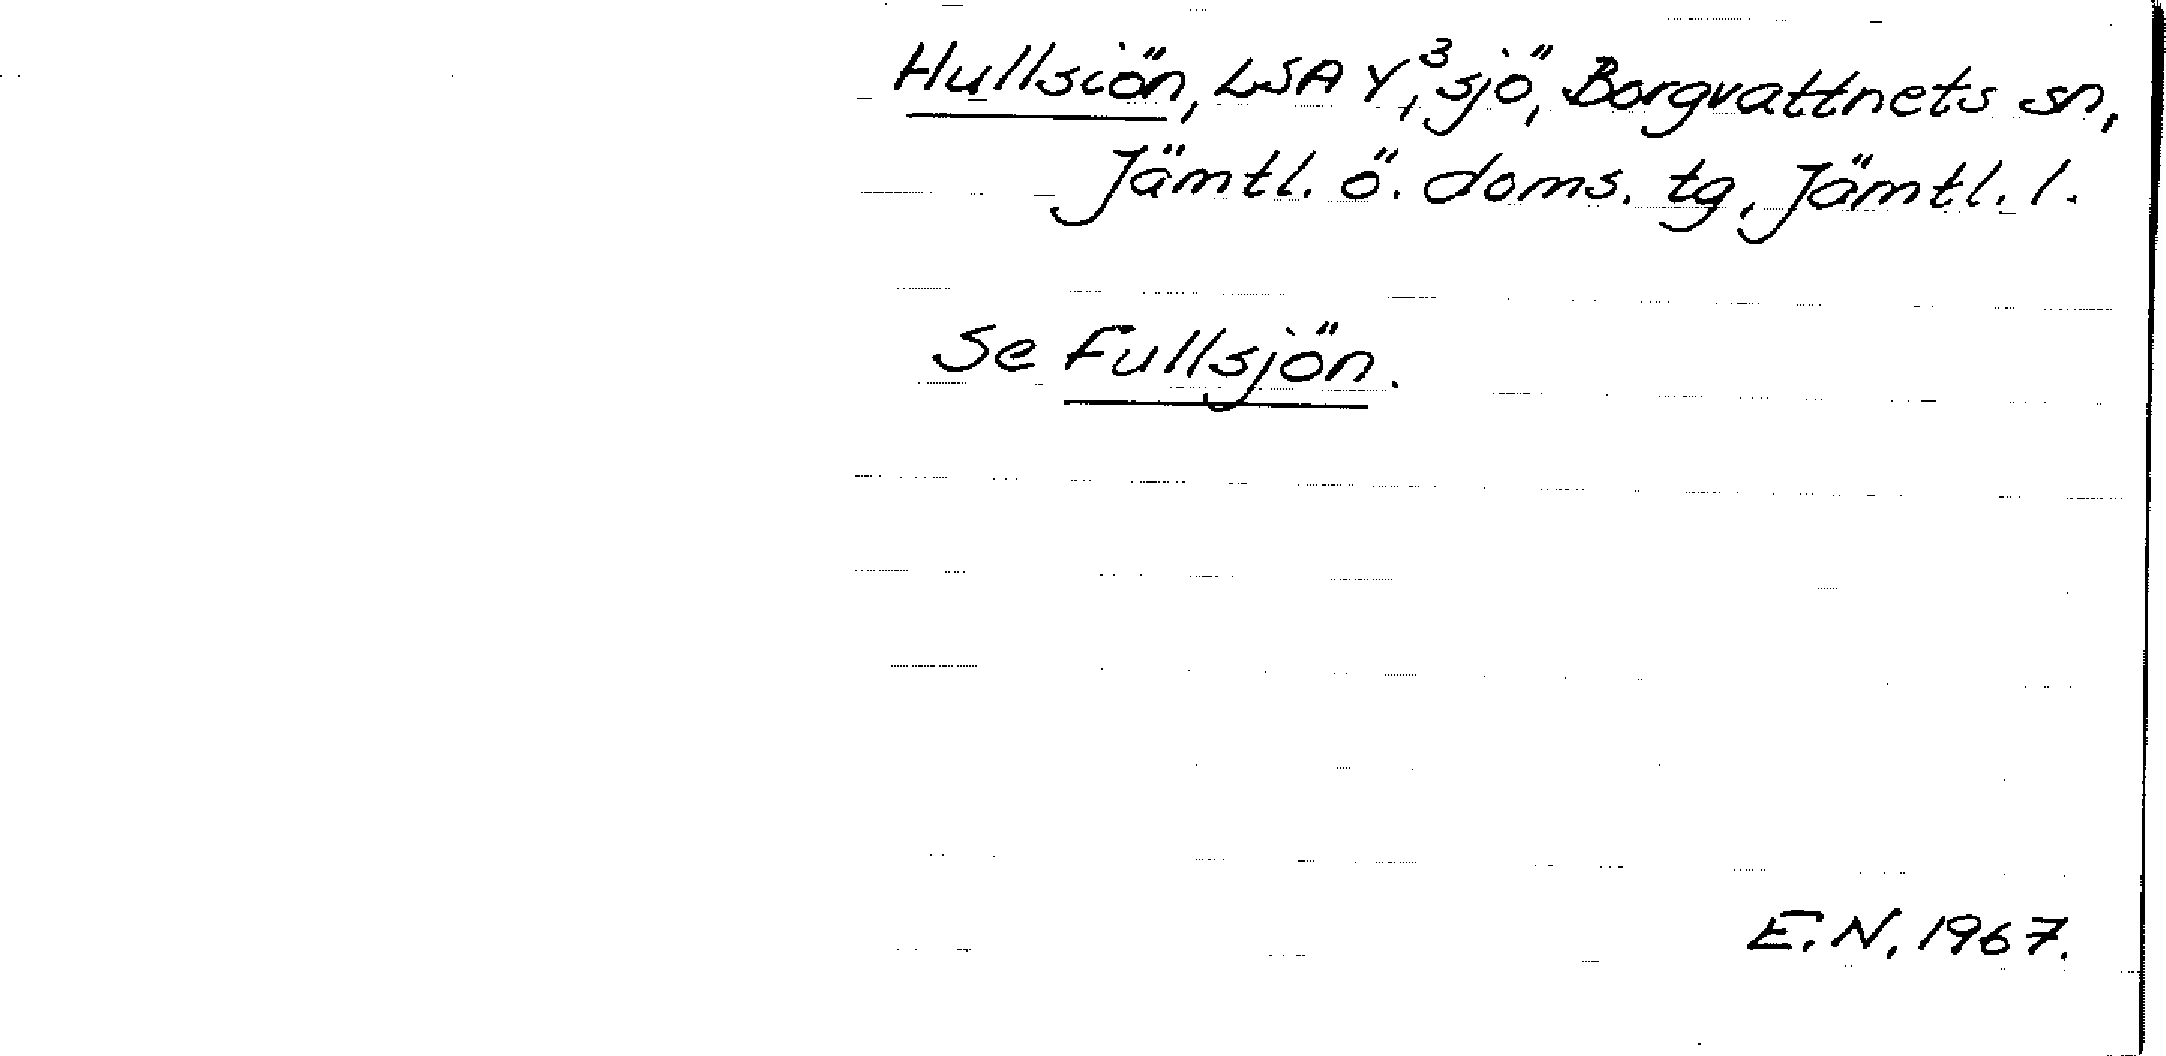 Hullsiön, LSA Y³, sjö, Borgvattnets sn,
Jämtl. ö. doms. tg, Jämtl. l.
Se Fullsjön.
E.N. 1967.